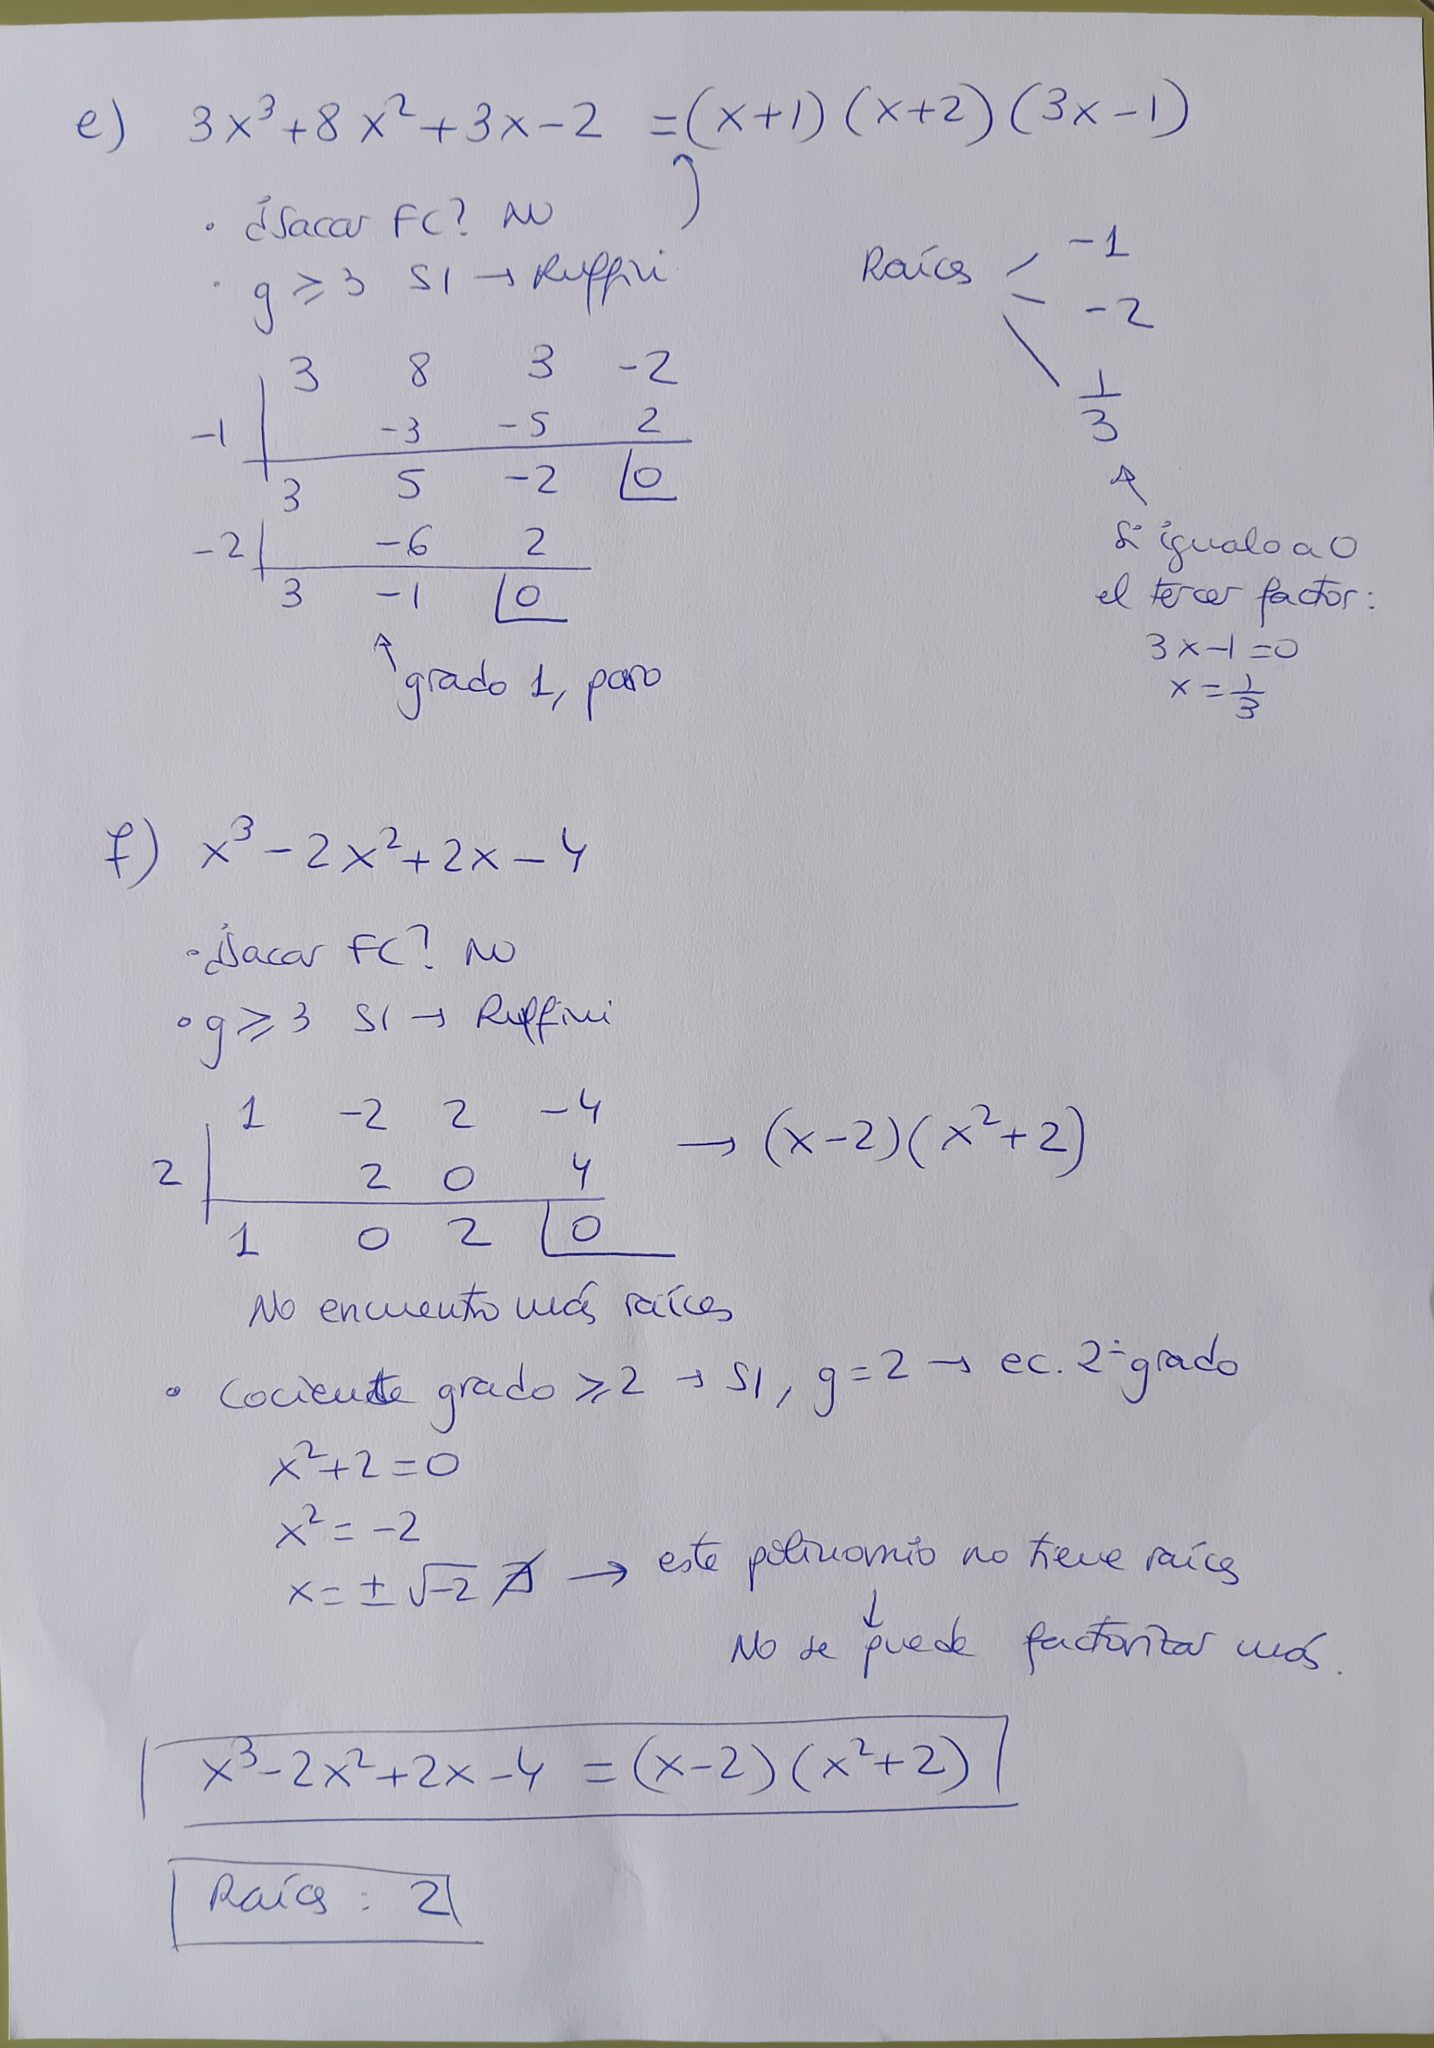 e) 3x³+8x²+3x-2 =(x+1)(x+2)(3x-1)
· ¿Sacar FC? NO
· g≥3 SI → Ruffini
Raíces -1
-2
1/3
3 8 3 -2
-1 -3 -5 2
3 5 -2 0
-2 -6 2
3 -1 0
grado 1, paro
Si igualo a 0
el tercer factor:
3x-1=0
x=1/3
f) x³-2x²+2x-4
· ¿Sacar FC? NO
· g≥3 SI → Ruffini
1 -2 2 -4
2 2 0 4
1 0 2 0
→ (x-2)(x²+2)
No encuentro más raíces
· Cociente grado ≥2 → SI, g=2 → ec. 2º grado
x²+2=0
x²=-2
x=±√-2 ∄ → este polinomio no tiene raíces
↓
No se puede factorizar más.
x³-2x²+2x-4 =(x-2)(x²+2)
Raíces : 2